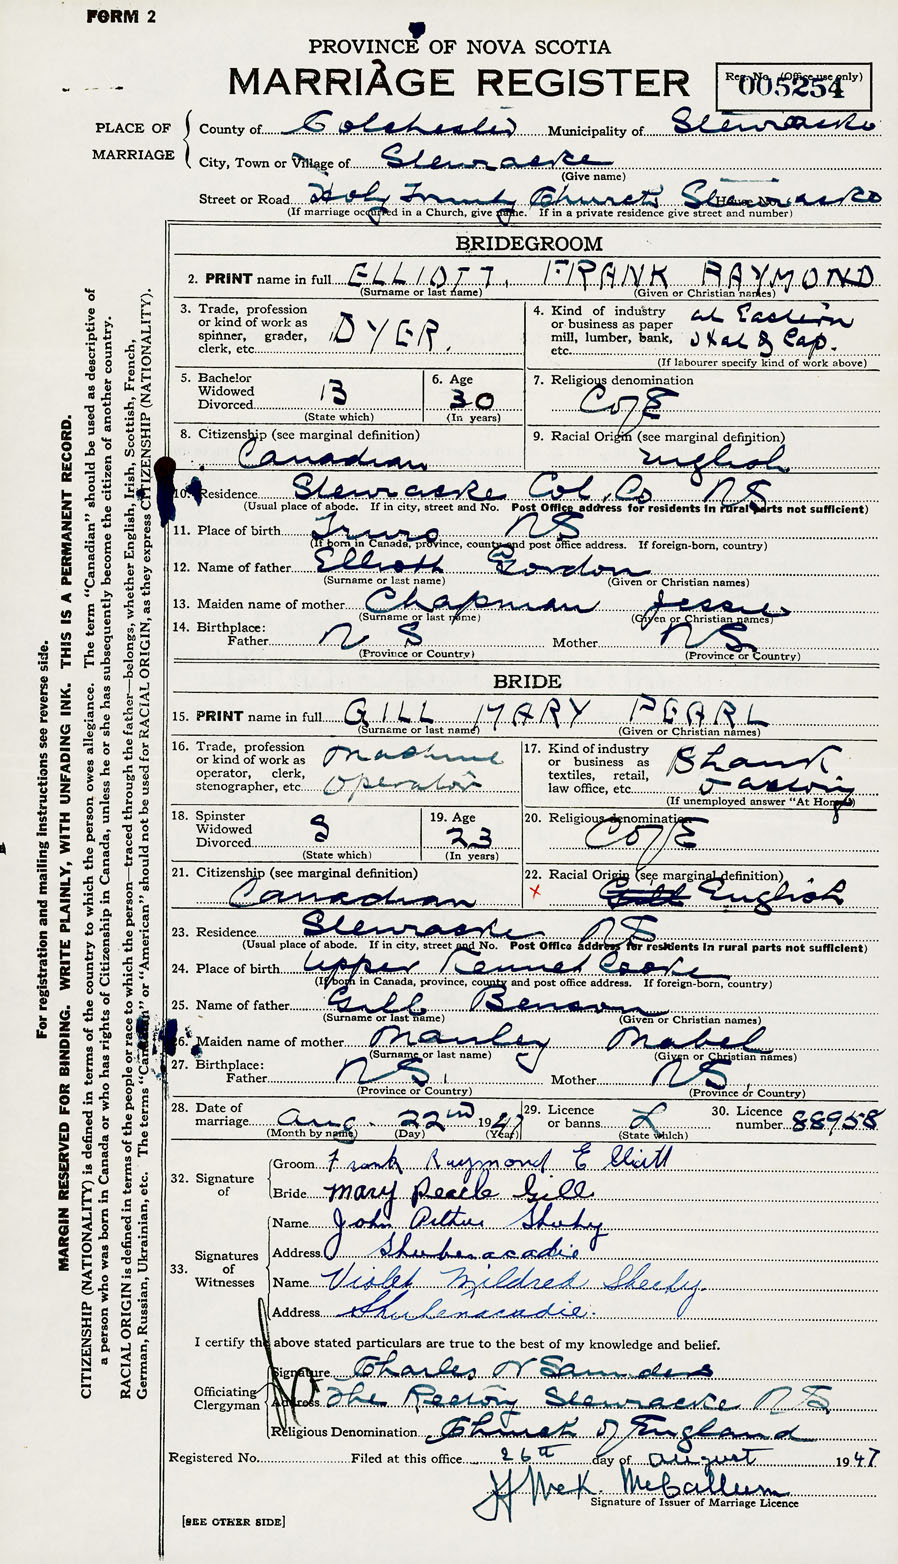 FORM 2
PROVINCE OF NOVA SCOTIA
MARRIAGE REGISTER
Reg. No. (Office use only)
005254
PLACE OF MARRIAGE
County of Colchester Municipality of Stewiacke
City, Town or Village of Stewiacke
(Give name)
Street or Road Holy Trinity Church Stewiacke House No.
(If marriage occurred in a Church, give name. If in a private residence give street and number)
BRIDEGROOM
2. PRINT name in full ELLIOTT, FRANK RAYMOND
(Surname or last name) (Given or Christian names)
3. Trade, profession or kind of work as spinner, grader, clerk, etc. DYER.
4. Kind of industry or business as paper mill, lumber, bank, etc. at Eastern Hat & Cap.
(If labourer specify kind of work above)
5. Bachelor Widowed Divorced B
(State which)
6. Age 30
(In years)
7. Religious denomination C of E
8. Citizenship (see marginal definition) Canadian
9. Racial Origin (see marginal definition) English
10. Residence Stewiacke Col. Co NS
(Usual place of abode. If in city, street and No. Post Office address for residents in rural parts not sufficient)
11. Place of birth Truro NS
(If born in Canada, province, county and post office address. If foreign-born, country)
12. Name of father Elliott Gordon
(Surname or last name) (Given or Christian names)
13. Maiden name of mother Chapman Jessie
(Surname or last name) (Given or Christian names)
14. Birthplace: Father NS Mother NS
(Province or Country) (Province or Country)
BRIDE
15. PRINT name in full GILL MARY PEARL
(Surname or last name) (Given or Christian names)
16. Trade, profession or kind of work as operator, clerk, stenographer, etc Machine Operator
17. Kind of industry or business as textiles, retail, law office, etc. Shank Factory
(If unemployed answer "At Home")
18. Spinster Widowed Divorced S
(State which)
19. Age 23
(In years)
20. Religious denomination C of E
21. Citizenship (see marginal definition) Canadian
22. Racial Origin (see marginal definition) x English
23. Residence Stewiacke NS
(Usual place of abode. If in city, street and No. Post Office address for residents in rural parts not sufficient)
24. Place of birth Upper Kennetcooke
(If born in Canada, province, county and post office address. If foreign-born, country)
25. Name of father Gill Benson
(Surname or last name) (Given or Christian names)
26. Maiden name of mother Manley Mabel
(Surname or last name) (Given or Christian names)
27. Birthplace: Father NS. Mother NS.
(Province or Country) (Province or Country)
28. Date of marriage Aug. 22nd 1947
(Month by name) (Day) (Year)
29. Licence or banns L
(State which)
30. Licence number 88958
32. Signature of
Groom Frank Raymond Elliott
Bride Mary Pearle Gill
33. Signatures of Witnesses
Name John Arthur Sheehy
Address Shubenacadie
Name Violet Mildred Sheehy
Address Shubenacadie.
I certify the above stated particulars are true to the best of my knowledge and belief.
Officiating Clergyman
Signature Charles N Samders
Address The Rectory Stewiacke NS
Religious Denomination Church of England
Registered No. Filed at this office 26th day of August 1947
McCallum
Signature of Issuer of Marriage Licence
[SEE OTHER SIDE]
For registration and mailing instructions see reverse side.
MARGIN RESERVED FOR BINDING. WRITE PLAINLY, WITH UNFADING INK. THIS IS A PERMANENT RECORD.
CITIZENSHIP (NATIONALITY) is defined in terms of the country to which the person owes allegiance. The term "Canadian" should be used as descriptive of
a person who was born in Canada or who has rights of Citizenship in Canada, unless he or she has subsequently become the citizen of another country.
RACIAL ORIGIN is defined in terms of the people or race to which the person—traced through the father—belongs, whether English, Irish, Scottish, French,
German, Russian, Ukrainian, etc. The terms "Canadian" or "American" should not be used for RACIAL ORIGIN, as they express CITIZENSHIP (NATIONALITY).